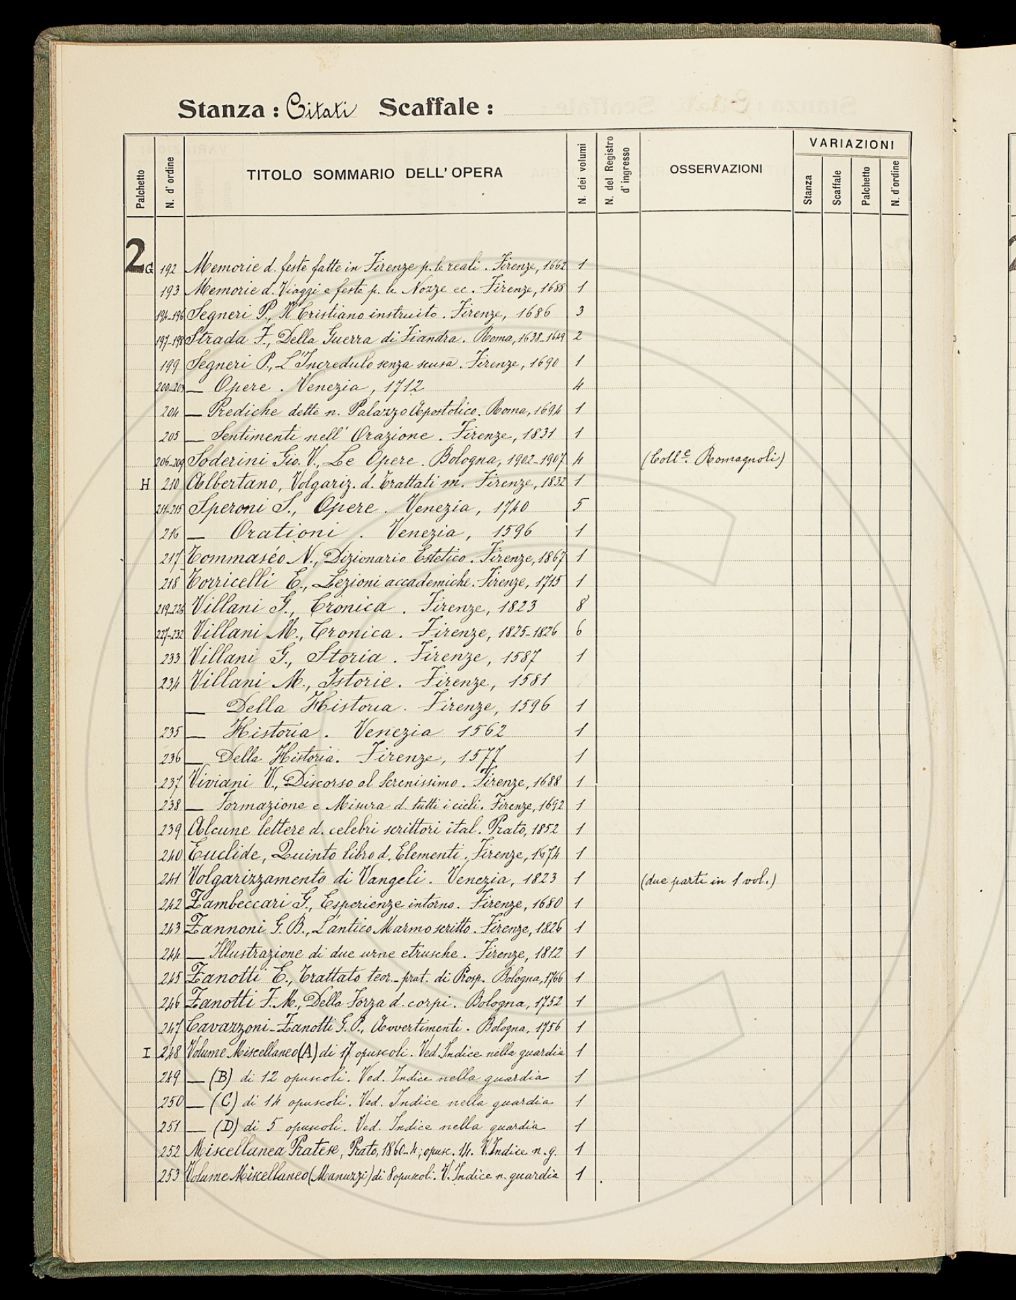 Stanza: Citati Scaffale:
Palchetto N. d'ordine TITOLO SOMMARIO DELL'OPERA N. dei volumi N. del Registro d'ingresso OSSERVAZIONI VARIAZIONI
Stanza Scaffale Palchetto N. d'ordine
2G 192 Memorie d. feste fatte in Firenze p. le reali. Firenze, 1662 1
193 Memorie d. Viaggi e feste p. le Nozze ec. Firenze, 1688 1
194-196 Segneri P., Il Cristiano instruito. Firenze, 1686 3
197-198 Strada F., Della Guerra di Fiandra. Roma, 1638-1649 2
199 Segneri P., L'Incredulo senza scusa. Firenze, 1690 1
200-203 — Opere. Venezia, 1712 4
204 — Prediche dette n. Palazzo Apostolico. Roma, 1694 1
205 — Sentimenti nell'Orazione. Firenze, 1831 1
206-209 Soderini Gio. V., Le Opere. Bologna, 1902-1907 4 (Coll.e Romagnoli)
H 210 Albertano, Volgariz. d. Trattati m. Firenze, 1832 1
211-215 Speroni S., Opere. Venezia, 1740 5
216 — Orationi. Venezia, 1596 1
217 Tommaséo N., Dizionario Estetico. Firenze, 1867 1
218 Torricelli E., Lezioni accademiche. Firenze, 1715 1
219-226 Villani G., Cronica. Firenze, 1823 8
227-232 Villani M., Cronica. Firenze, 1825-1826 6
233 Villani G., Storia. Firenze, 1587 1
234 Villani M., Istorie. Firenze, 1581
— Della Historia. Firenze, 1596 1
235 — Historia. Venezia 1562 1
236 — Della Historia. Firenze, 1577 1
237 Viviani V., Discorso al Serenissimo. Firenze, 1688 1
238 — Formazione e Misura d. tutti i cieli. Firenze, 1692 1
239 Alcune lettere d. celebri scrittori ital. Prato, 1852 1
240 Euclide, Quinto libro d. Elementi. Firenze, 1674 1
241 Volgarizzamento di Vangeli. Venezia, 1823 1 (due parti in 1 vol.)
242 Zambeccari G., Esperienze intorno. Firenze, 1680 1
243 Zannoni G. B., L'antico Marmo scritto. Firenze, 1826 1
244 — Illustrazione di due urne etrusche. Firenze, 1812 1
245 Zanotti E., Trattato teor.-prat. di Prosp. Bologna, 1766 1
246 Zanotti F. M., Della Forza d. corpi. Bologna, 1752 1
247 Cavazzoni-Zanotti G. P., Avvertimenti. Bologna, 1756 1
I 248 Volume Miscellaneo (A) di 17 opuscoli. Ved. Indice nella guardia 1
249 — (B) di 12 opuscoli. Ved. Indice nella guardia 1
250 — (C) di 14 opuscoli. Ved. Indice nella guardia 1
251 — (D) di 5 opuscoli. Ved. Indice nella guardia 1
252 Miscellanea Pratese, Prato, 1860-4; opusc. 14. V. Indice n. g. 1
253 Volume Miscellaneo (Manuzzi) di 8 opuscoli. V. Indice n. guardia 1